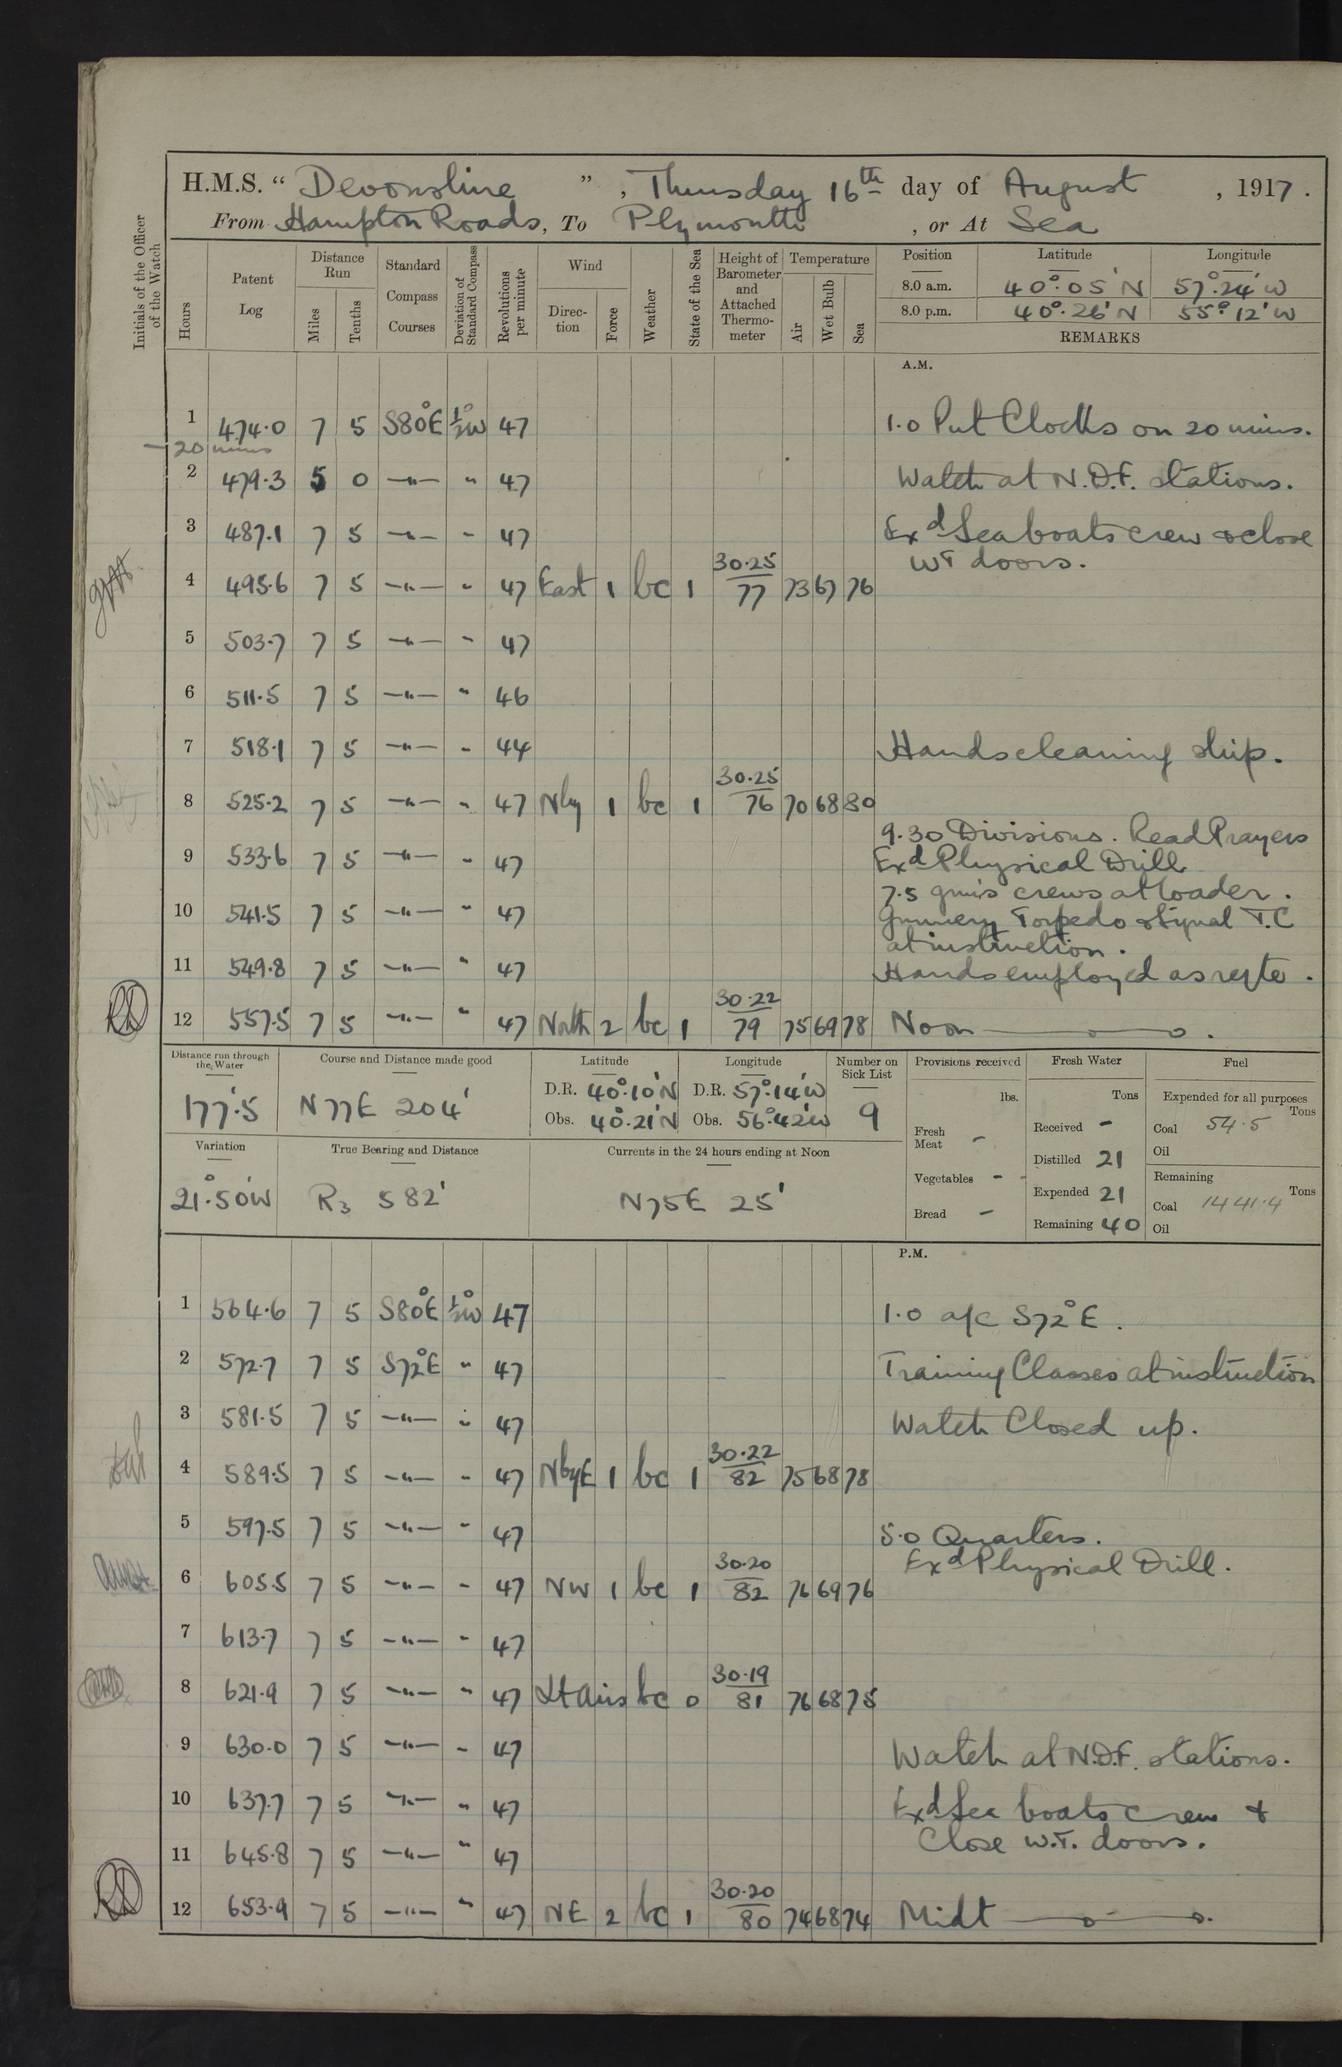 H.M.S. “ Devonshire ” , Thursday 16th day of August , 1917 .
From Hampton Roads , To Plymouth , or At Sea
Initials of the Officer of the Watch
Hours | Patent Log | Distance Run Miles Tenths | Standard Compass Courses | Deviation of Standard Compass | Revolutions per minute | Wind Direction Force | Weather | State of the Sea | Height of Barometer and Attached Thermometer | Temperature Air Wet Bulb Sea | Position Latitude Longitude
8.0 a.m. 40°.05' N 57°.24' W
8.0 p.m. 40°.26' N 55°.12' W
REMARKS
A.M.
1 474.0 7 5 S80°E ½°W 47 1.0 Put Clocks on 20 mins.
-20 mins
2 479.3 5 0 —"— " 47 Watch at N.D.F. stations.
3 487.1 7 5 —"— " 47 Exd Sea boats crew & close
W.T doors.
4 495.6 7 5 —"— " 47 East 1 bc 1 30.25 77 73 67 76
5 503.7 7 5 —"— " 47
6 511.5 7 5 —"— " 46
7 518.1 7 5 —"— " 44 Hands cleaning ship.
8 525.2 7 5 —"— " 47 Nly 1 bc 1 30.25 76 70 68 80
9.30 Divisions. Read Prayers
9 533.6 7 5 —"— " 47 Exd Physical Drill
7.5 guns crews at loader.
10 541.5 7 5 —"— " 47 Gunnery Torpedo & Signal T.C
at instruction.
11 549.8 7 5 —"— " 47 Hands employed as reqte.
12 557.5 7 5 —"— " 47 North 2 bc 1 30.22 79 75 69 78 Noon
Distance run through the Water 177'.5
Course and Distance made good N77E 204'
Latitude D.R. 40°.10'N Obs. 40°.21'N
Longitude D.R. 57°.14'W Obs. 56°.42'W
Number on Sick List 9
Provisions received lbs. Fresh Meat - Vegetables - - Bread -
Fresh Water Tons Received - Distilled 21 Expended 21 Remaining 40
Fuel Expended for all purposes Tons Coal 54.5 Oil
Remaining Tons Coal 1441.4 Oil
Variation 21°.50'W
True Bearing and Distance R3 582'
Currents in the 24 hours ending at Noon N75E 25'
P.M.
1 564.6 7 5 S80°E ½°W 47 1.0 a/c S72°E.
2 572.7 7 5 S72°E " 47 Training Classes at instruction
3 581.5 7 5 —"— " 47 Watch Closed up.
4 589.5 7 5 —"— " 47 NbyE 1 bc 1 30.22 82 75 68 78
5 597.5 7 5 —"— " 47 5.0 Quarters.
Exd Physical Drill.
6 605.5 7 5 —"— " 47 NW 1 bc 1 30.20 82 76 69 76
7 613.7 7 5 —"— " 47
8 621.9 7 5 —"— " 47 Lt airs bc 0 30.19 81 76 68 75
9 630.0 7 5 —"— " 47 Watch at N.D.F. stations.
10 637.7 7 5 —"— " 47 Exd Sea boats crew &
Close W.T. doors.
11 645.8 7 5 —"— " 47
12 653.9 7 5 —"— " 47 NE 2 bc 1 30.20 80 74 68 74 Midt